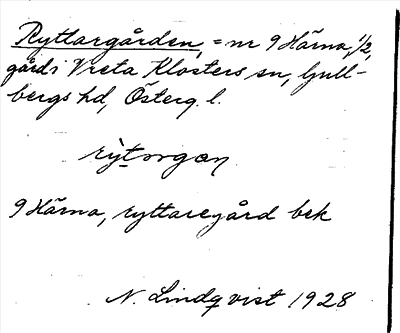 Ryttargården, = nr 9 Härna, 1/2,
gård i Vreta Klosters sn, Gull-
bergs hd, Österg. l.
rỳtorgan
9 Härna, ryttaregård bek
N. Lindqvist 1928